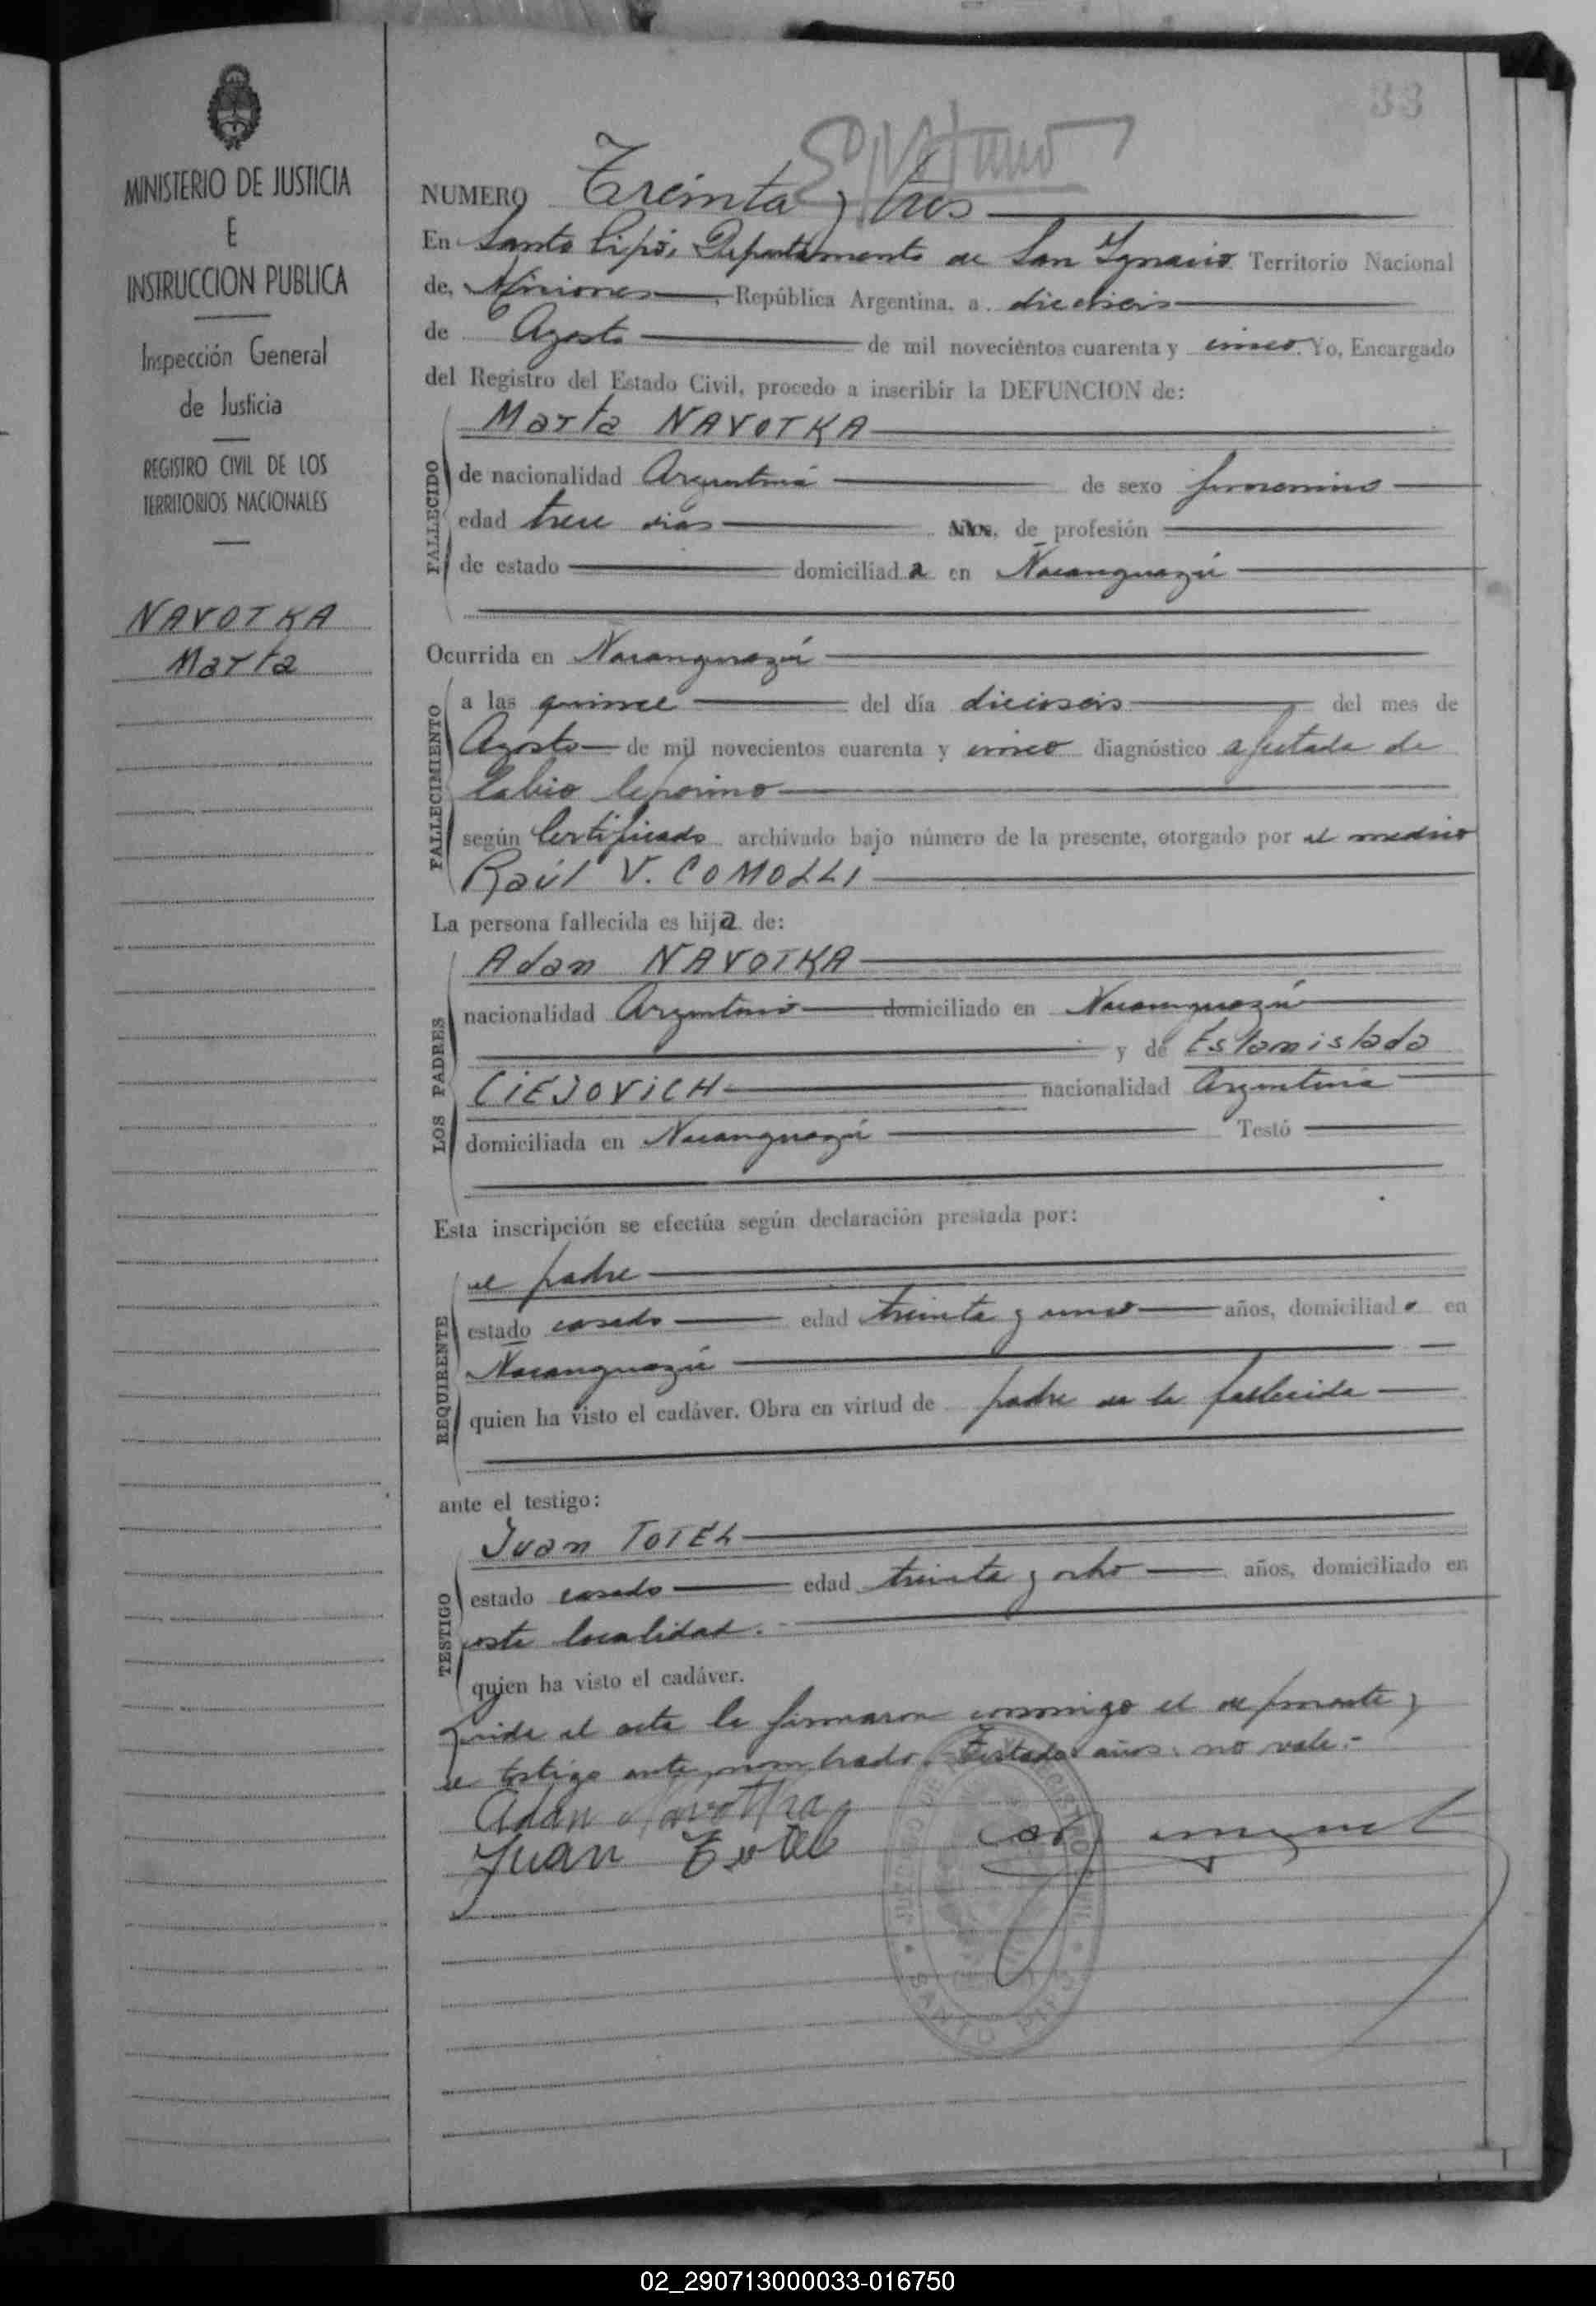 33
MINISTERIO DE JUSTICIA
E
INSTRUCCION PUBLICA
Inspección General
de Justicia
REGISTRO CIVIL DE LOS
TERRITORIOS NACIONALES
NAVOTKA
Marta
NUMERO Treinta y tres
En Santo Pipó, Departamento de San Ignacio Territorio Nacional
de, Misiones, República Argentina, a dieciseis
de Agosto de mil novecientos cuarenta y cinco. Yo, Encargado
del Registro del Estado Civil, procedo a inscribir la DEFUNCION de:
Marta NAVOTKA
FALLECIDO
de nacionalidad Argentina de sexo femenino
edad trece dias años, de profesión
de estado domiciliada en Ñacanguazú
Ocurrida en Ñacanguazú
FALLECIMIENTO
a las quince del día dieciseis del mes de
Agosto de mil novecientos cuarenta y cinco diagnóstico afectada de
labio leporino
según Certificado archivado bajo número de la presente, otorgado por el medico
Raúl V. COMOLLI
La persona fallecida es hija de:
LOS PADRES
Adan NAVOTKA
nacionalidad Argentino domiciliado en Ñacanguazú
y de Estanislada
CIEJOVICH nacionalidad Argentina
domiciliada en Ñacanguazú Testó
Esta inscripción se efectúa según declaración prestada por:
REQUIRENTE
el padre
estado casado edad treinta y uno años, domiciliado en
Ñacanguazú
quien ha visto el cadáver. Obra en virtud de padre de la fallecida
ante el testigo:
TESTIGO
Juan TOTEL
estado casado edad treinta y ocho años, domiciliado en
esta localidad.
quien ha visto el cadáver.
Leida el acta la firmaron conmigo el deponente y
el testigo ante nombrado. Testado: años: no vale.-
Adan Navotka
Juan Totel
SANTO PIPÓ
02_290713000033-016750